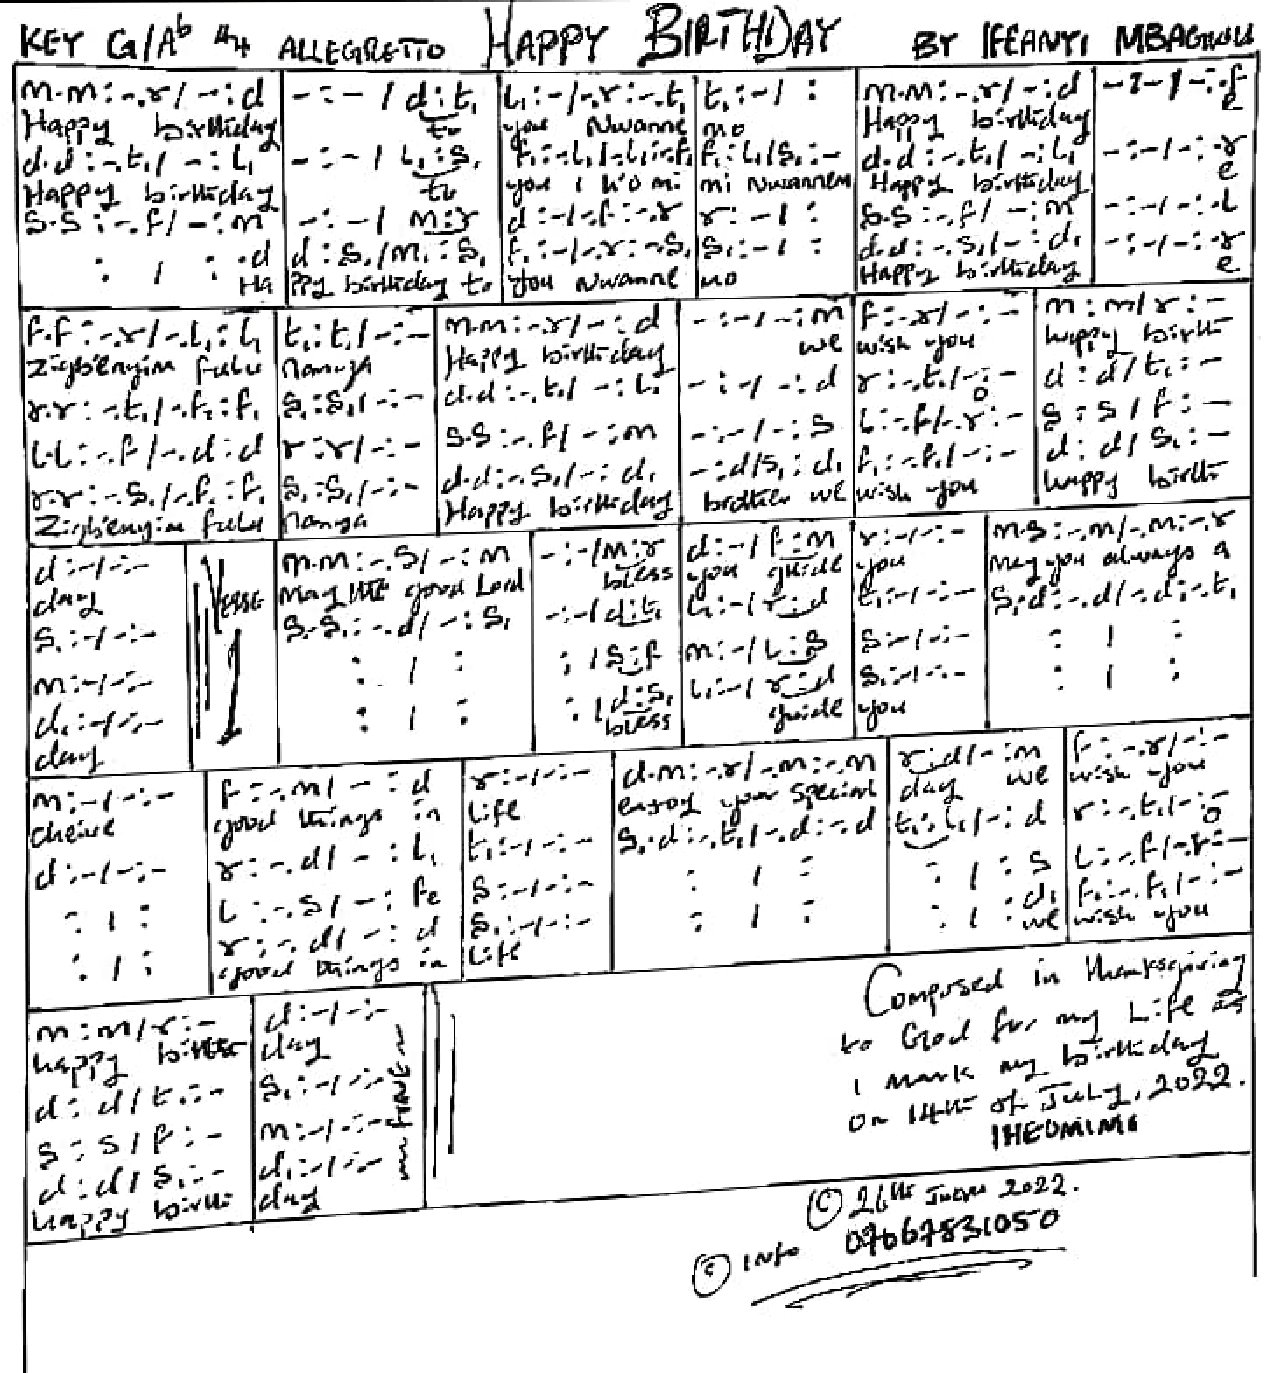 KEY G/Ab 4/4 ALLEGRETTO HAPPY BIRTHDAY BY IFEANYI MBAGWU
m.m:-.r/-:d -:-/d:t, l,:-/-.r:-.t, t,:-/ : m.m:-.r/-:d -:-/-:-.f
Happy birthday to you Nwanne mo Happy birthday e
d.d:-.t,/-:l, -:-/l,:s, f,:-.l,/-.l,:-.f, f,:l,/s,:- d.d:-.t,/-:l, -:-/-:-.r
Happy birthday to you mi Nwannem Happy birthday e
s.s:-.f/-:m -:-/m:r d:-/-.f:-.r r:-/ : s.s:-.f/-:m -:-/-:-.l
: / : .d d:s,/m,:s, f,:-/-.r:-.s, s,:-/ : d.d:-.s,/-:d, -:-/-:-.r
Ha ppy birthday to you Nwanne mo Happy birthday e
f.f:-.r/-.l,:l, t,:t,/-:- m.m:-.r/-:d -:-/-:m f:-.r/-:- m:m/r:-
Zigbenyim fulu Nanya Happy birthday we wish you happy birth
r.r:-.t,/-.f,:f, s,:s,/-:- d.d:-.t,/-:l, -:-/-:d r:-.t,/-:- d:d/t,:-
l.l:-.f/-.d:d r:r/-:- s.s:-.f/-:m -:-/-:s l:-.f/-.r:- s:s/f:-
r.r:-.s,/-.f,:f, s,:s,/-:- d.d:-.s,/-:d, -:d/s,:d, f,:-.f,/-:- d:d/s,:-
Zigbenyim fulu Nanya Happy birthday brother we wish you happy birth
d:-/-:- VERSE m.m:-.s/-:m -:-/m:r d:-/f:m r:-/-:- m.s:-.m/-.m:-.r
day May the good Lord bless you guide you May you always a
s,:-/-:- s,.s,:-.d/-:s, -:-/d:t, l,:-/r:d t,:-/-:- s,.d:-.d/-.d:-.t,
m:-/-:- : / : : /s:f m:-/l:s s:-/-:- : / :
d,:-/-:- : / : : /d:s, l,:-/r:d s,:-/-:- : / :
day bless guide you
m:-/-:- f:-.m/-:d r:-/-:- d.m:-.r/-.m:-.m r:d/-:m f:-.r/-:-
cheive good things in life enjoy your special day we wish you
d:-/-:- r:-.d/-:l, t,:-/-:- s,.d:-.t,/-.d:-.d t,:l,/-:d r:-.t,/-:-
: / : l:-.s/-:fe s:-/-:- : / : : / :s l:-.f/-.r:-
: / : r:-.d/-:d s,:-/-:- : / : : / :d, f,:-.f,/-:-
good things in life we wish you
m:m/r:- d:-/-:-
happy birth day
d:d/t,:- s,:-/-:-
s:s/f:- m:-/-:-
d:d/s,:- d,:-/-:-
happy birth day
FINE
Composed in thanksgiving
to God for my Life as
I mark my birthday
on 14th of July, 2022.
IHEOMIMI
© 26th June 2022.
© INFO 07067831050